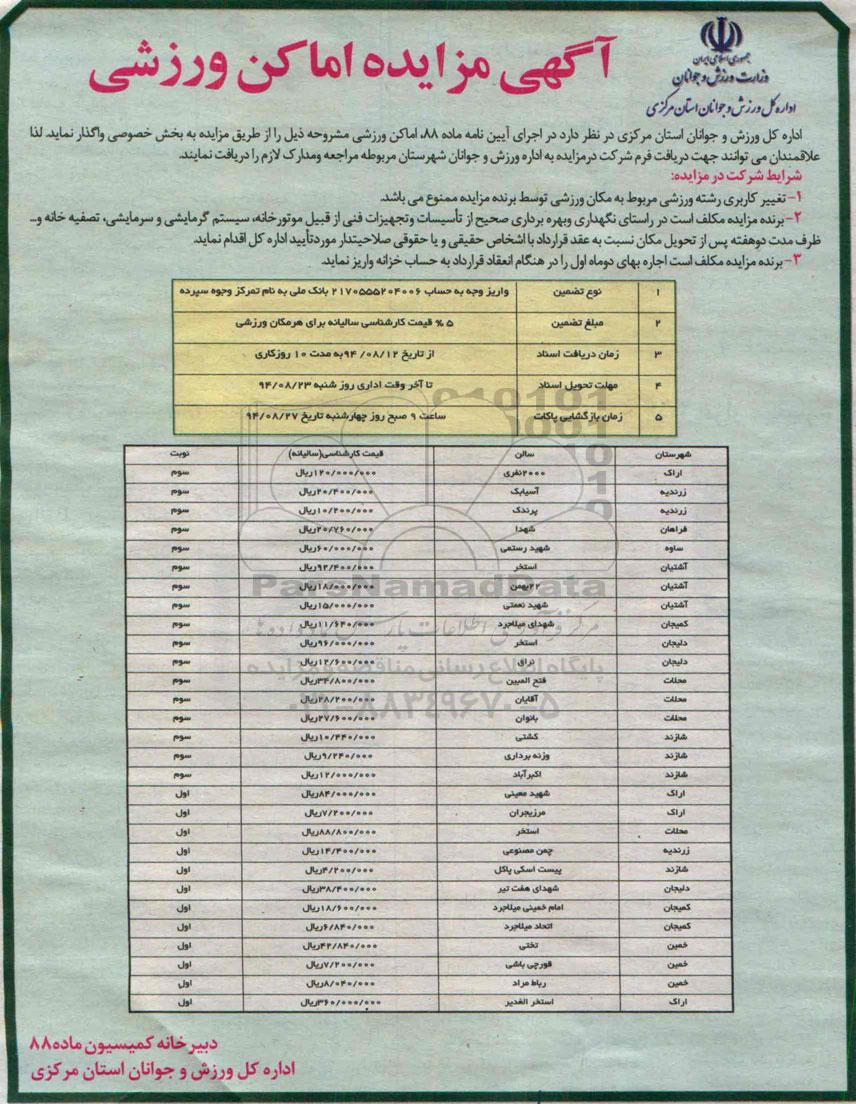 جمهوری اسلامی ایران
وزارت ورزش و جوانان
اداره کل ورزش و جوانان استان مرکزی
آگهی مزایده اماکن ورزشی
اداره کل ورزش و جوانان استان مرکزی در نظر دارد در اجرای آیین نامه ماده ۸۸، اماکن ورزشی مشروحه ذیل را از طریق مزایده به بخش خصوصی واگذار نماید. لذا
علاقمندان می توانند جهت دریافت فرم شرکت درمزایده به اداره ورزش و جوانان شهرستان مربوطه مراجعه ومدارک لازم را دریافت نمایند.
شرایط شرکت در مزایده:
۱- تغییر کاربری رشته ورزشی مربوط به مکان ورزشی توسط برنده مزایده ممنوع می باشد.
۲-برنده مزایده مکلف است در راستای نگهداری وبهره برداری صحیح از تأسیسات وتجهیزات فنی از قبیل موتورخانه، سیستم گرمایشی و سرمایشی، تصفیه خانه و...
ظرف مدت دوهفته پس از تحویل مکان نسبت به عقد قرارداد با اشخاص حقیقی و یا حقوقی صلاحیتدار موردتأیید اداره کل اقدام نماید.
۳-برنده مزایده مکلف است اجاره بهای دوماه اول را در هنگام انعقاد قرارداد به حساب خزانه واریز نماید.
۱ نوع تضمین واریز وجه به حساب ۲۱۷۰۵۵۵۲۰۴۰۰۶ بانک ملی به نام تمرکز وجوه سپرده
۲ مبلغ تضمین ۵ % قیمت کارشناسی سالیانه برای هرمکان ورزشی
۳ زمان دریافت اسناد از تاریخ ۹۴/۰۸/۱۲ به مدت ۱۰ روزکاری
۴ مهلت تحویل اسناد تا آخر وقت اداری روز شنبه ۹۴/۰۸/۲۳
۵ زمان بازگشایی پاکات ساعت ۹ صبح روز چهارشنبه تاریخ ۹۴/۰۸/۲۷
شهرستان سالن قیمت کارشناسی(سالیانه) نوبت
اراک ۲۰۰۰نفری ۱۲۰/۰۰۰/۰۰۰ریال سوم
زرندیه آسیابک ۲۰/۴۰۰/۰۰۰ریال سوم
زرندیه پرندک ۱۰/۲۰۰/۰۰۰ریال سوم
فراهان شهدا ۲۰/۷۶۰/۰۰۰ریال سوم
ساوه شهید رستمی ۶۰/۰۰۰/۰۰۰ریال سوم
آشتیان استخر ۹۲/۴۰۰/۰۰۰ریال سوم
آشتیان ۲۲بهمن ۱۸/۰۰۰/۰۰۰ریال سوم
آشتیان شهید نعمتی ۱۵/۰۰۰/۰۰۰ریال سوم
کمیجان شهدای میلاجرد ۱۱/۶۴۰/۰۰۰ریال سوم
دلیجان استخر ۹۶/۰۰۰/۰۰۰ریال سوم
دلیجان نراق ۱۲/۶۰۰/۰۰۰ریال سوم
محلات فتح المبین ۳۴/۸۰۰/۰۰۰ریال سوم
محلات آقایان ۲۸/۲۰۰/۰۰۰ریال سوم
محلات بانوان ۲۷/۶۰۰/۰۰۰ریال سوم
شازند کشتی ۱۰/۴۴۰/۰۰۰ریال سوم
شازند وزنه برداری ۹/۲۴۰/۰۰۰ریال سوم
شازند اکبرآباد ۱۲/۰۰۰/۰۰۰ریال سوم
اراک شهید معینی ۸۴/۰۰۰/۰۰۰ریال اول
اراک مرزیجران ۷/۲۰۰/۰۰۰ریال اول
محلات استخر ۸۸/۸۰۰/۰۰۰ریال اول
زرندیه چمن مصنوعی ۱۴/۴۰۰/۰۰۰ریال اول
شازند پیست اسکی پاکل ۴/۲۰۰/۰۰۰ریال اول
دلیجان شهدای هفت تیر ۳۸/۴۰۰/۰۰۰ریال اول
کمیجان امام خمینی میلاجرد ۱۸/۶۰۰/۰۰۰ریال اول
کمیجان اتحاد میلاجرد ۶/۸۴۰/۰۰۰ریال اول
خمین تختی ۴۲/۸۴۰/۰۰۰ریال اول
خمین قورچی باشی ۷/۲۰۰/۰۰۰ریال اول
خمین رباط مراد ۸/۰۴۰/۰۰۰ریال اول
اراک استخر الغدیر ۳۶۰/۰۰۰/۰۰۰ریال اول
ParsNamadData
پایگاه اطلاع رسانی مناقصه و مزایده
۰۲۱-۸۸۳۴۹۶۷۰-۵
دبیرخانه کمیسیون ماده۸۸
اداره کل ورزش و جوانان استان مرکزی